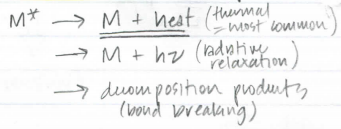 M* → M + heat (thermal
= most common)
→ M + hν (radiative
relaxation)
→ decomposition products
(bond breaking)